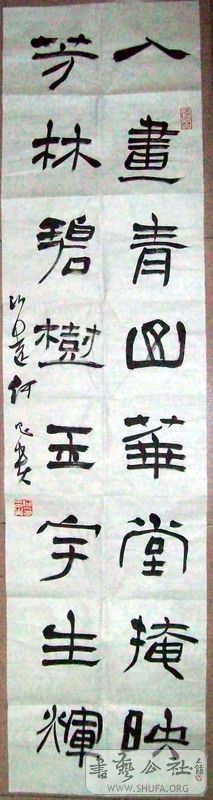 入畫青山華堂掩映
芳林碧樹玉宇生輝
書藝公社
WWW.SHUFA.ORG